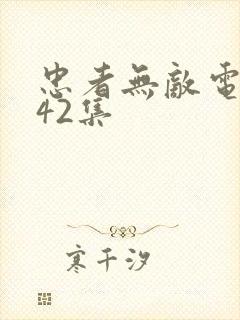 忠者無敵電
42集
寒千汐